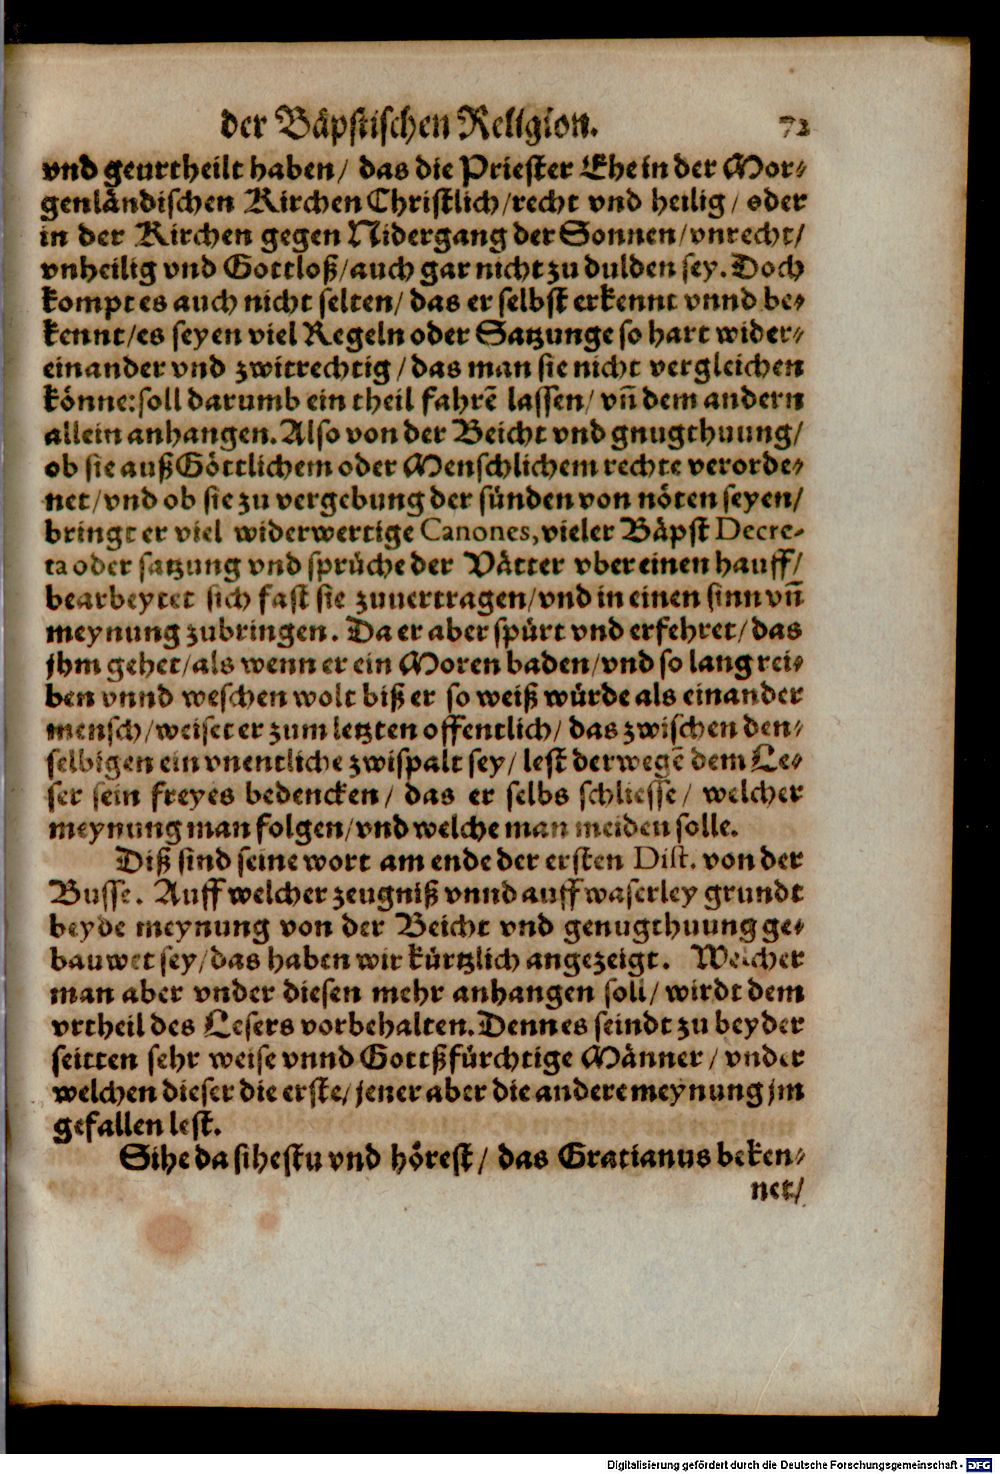 der Bäpstischen Religion. 72
vnd geurtheilt haben/ das die Priester Ehe in der Mor-
genländischen Kirchen Christlich/recht vnd heilig/ oder
in der Kirchen gegen Nidergang der Sonnen/vnrecht/
vnheilig vnd Gottloß/auch gar nicht zu dulden sey. Doch
kompt es auch nicht selten/ das er selbst erkennt vnnd be-
kennt/es seyen viel Regeln oder Satzunge so hart wider-
einander vnd zwitrechtig/das man sie nicht vergleichen
könne: soll darumb ein theil fahrē lassen/ vñ dem andern
allein anhangen. Also von der Beicht vnd gnugthuung/
ob sie auß Göttlichem oder Menschlichem rechte verorde-
net/vnd ob sie zu vergebung der sünden von nöten seyen/
bringt er viel widerwertige Canones, vieler Bäpst Decre-
ta oder satzung vnd sprüche der Vätter vber einen hauff/
bearbeytet sich fast sie zuuertragen/vnd in einen sinn vñ
meynung zubringen. Da er aber spürt vnd erfehret/das
jhm gehet/als wenn er ein Moren baden/vnd so lang rei-
ben vnnd weschen wolt biß er so weiß würde als einander
mensch/weiset er zum letzten offentlich/ das zwischen den-
selbigen ein vnentliche zwispalt sey/ lest derwegē dem Le-
ser sein freyes bedencken/ das er selbs schliesse/ welcher
meynung man folgen/vnd welche man meiden solle.
Diß sind seine wort am ende der ersten Dist. von der
Busse. Auff welcher zeugniß vnnd auff waserley grundt
beyde meynung von der Beicht vnd genugthuung ge-
bauwet sey/das haben wir kürtzlich angezeigt. Welcher
man aber vnder diesen mehr anhangen soll/ wirdt dem
vrtheil des Lesers vorbehalten. Denn es seindt zu beyder
seitten sehr weise vnnd Gottßfürchtige Männer/ vnder
welchen dieser die erste/ jener aber die andere meynung jm
gefallen lest.
Sihe da sihestu vnd hörest/ das Gratianus beken-
net/
Digitalisierung gefördert durch die Deutsche Forschungsgemeinschaft - DFG